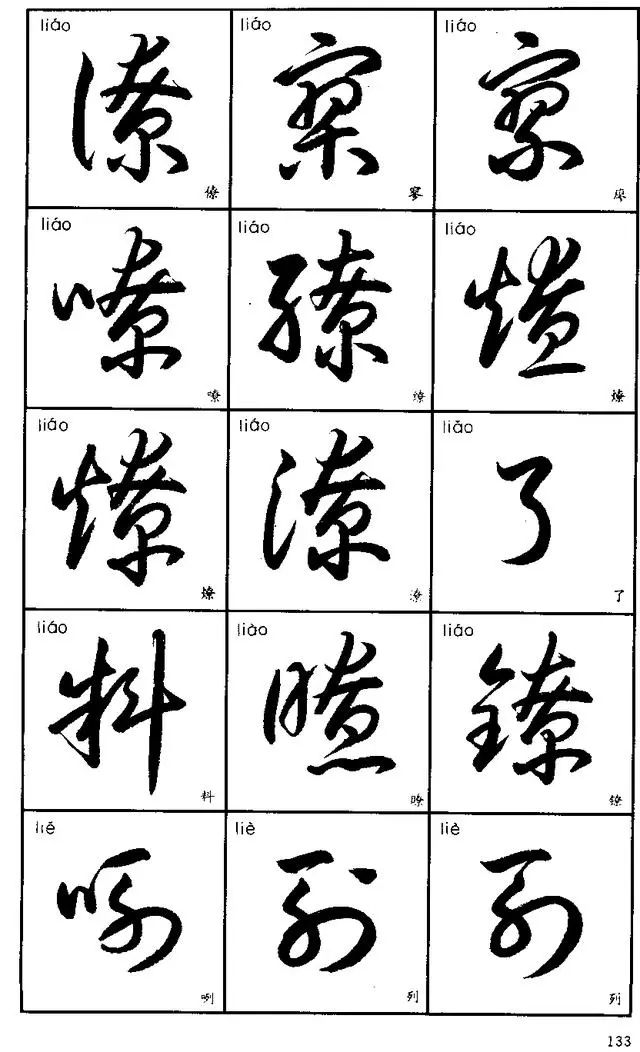 liáo liáo liáo
僚 寥
僚 寥
liáo liáo liáo
嘹 缭 燎
嘹 缭 燎
liáo liáo liǎo
燎 潦 了
燎 潦 了
liáo liào liáo
料 瞭 镣
料 瞭 镣
liě liè liè
咧 列 列
咧 列 列
133